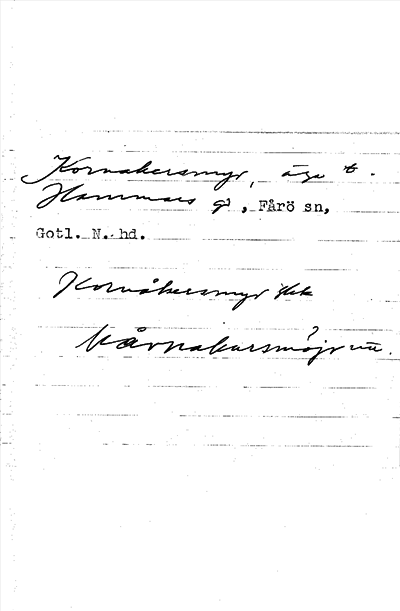 Kornakersmyr, äga t.
Hammars gd, Fårö sn,
Gotl. N. hd.
Kornåkersmyr
kårnakarsmöjr